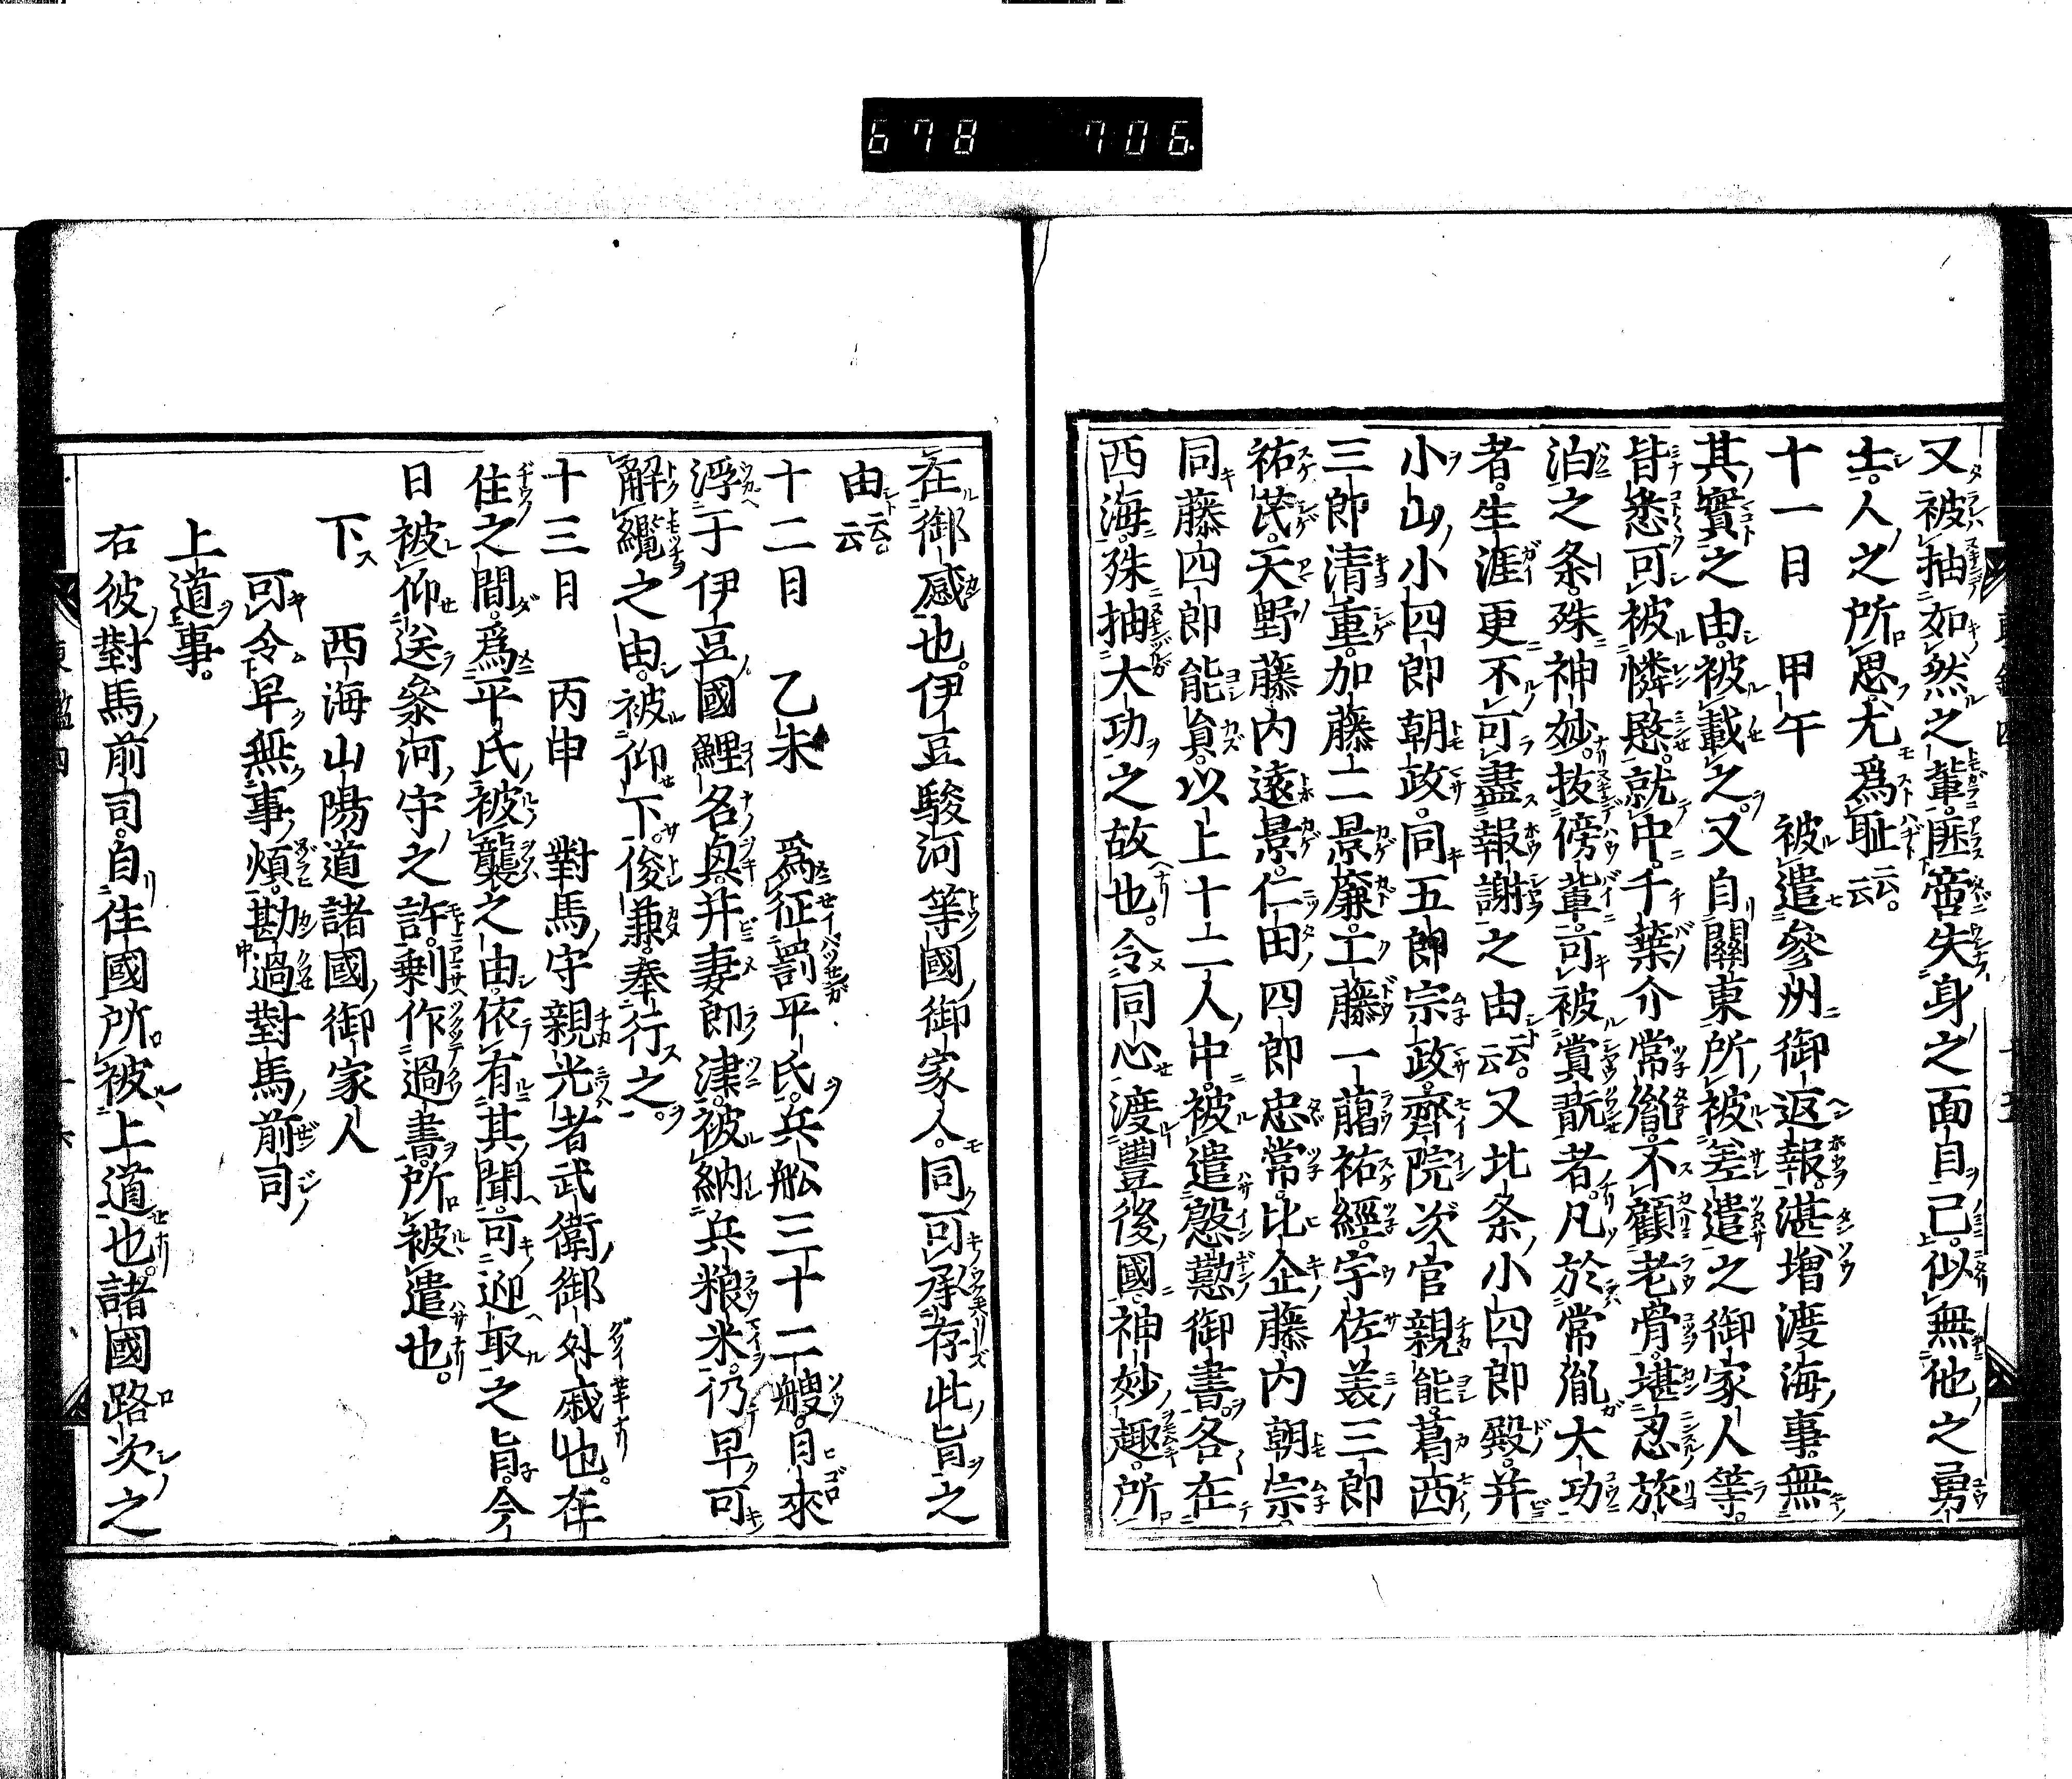 678 706
又被抽如然之輩匪啻失身之面目己似無他之勇
士人之所思尤爲耻云云
十一日 甲午 被遣參州御返報湛増渡海事無
其實之由被載之又自關東所被差遣之御家人等
皆悉可被憐愍就中千葉介常胤不顧老骨堪忍旅
泊之条殊神妙抜傍輩可被賞翫者凡於常胤大功
者生涯更不可盡報謝之由云云又北条小四郎殿并
小山小四郎朝政同五郎宗政齊院次官親能葛西
三郎清重加藤二景廉工藤一﨟祐經宇佐美三郎
祐茂天野藤内遠景仁田四郎忠常比企藤内朝宗
同藤四郎能員以上十二人中被遣慇懃御書各在
西海殊抽大功之故也令同心渡豐後國神妙趣所
在御感也伊豆駿河等國御家人同可承存此旨之
由云云
十二日 乙未 爲征罰平氏兵舩三十二艘自來
浮于伊豆國鯉名奥并妻郎津被納兵粮米仍早可
解纜之由被仰下俊兼奉行之
十三日 丙申 對馬守親光者武衛御外戚也在
住之間爲平氏被襲之由依有其聞可迎取之旨今
日被仰送參河守之許剰作過書所被遣也
下 西海山陽道諸國御家人
可令早無事煩勘過對馬前司
上道事
右彼對馬前司自住國所被上道也諸國路次之